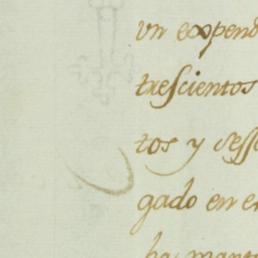 un expend
trescientos
tos y sess
gado en e
ha mant